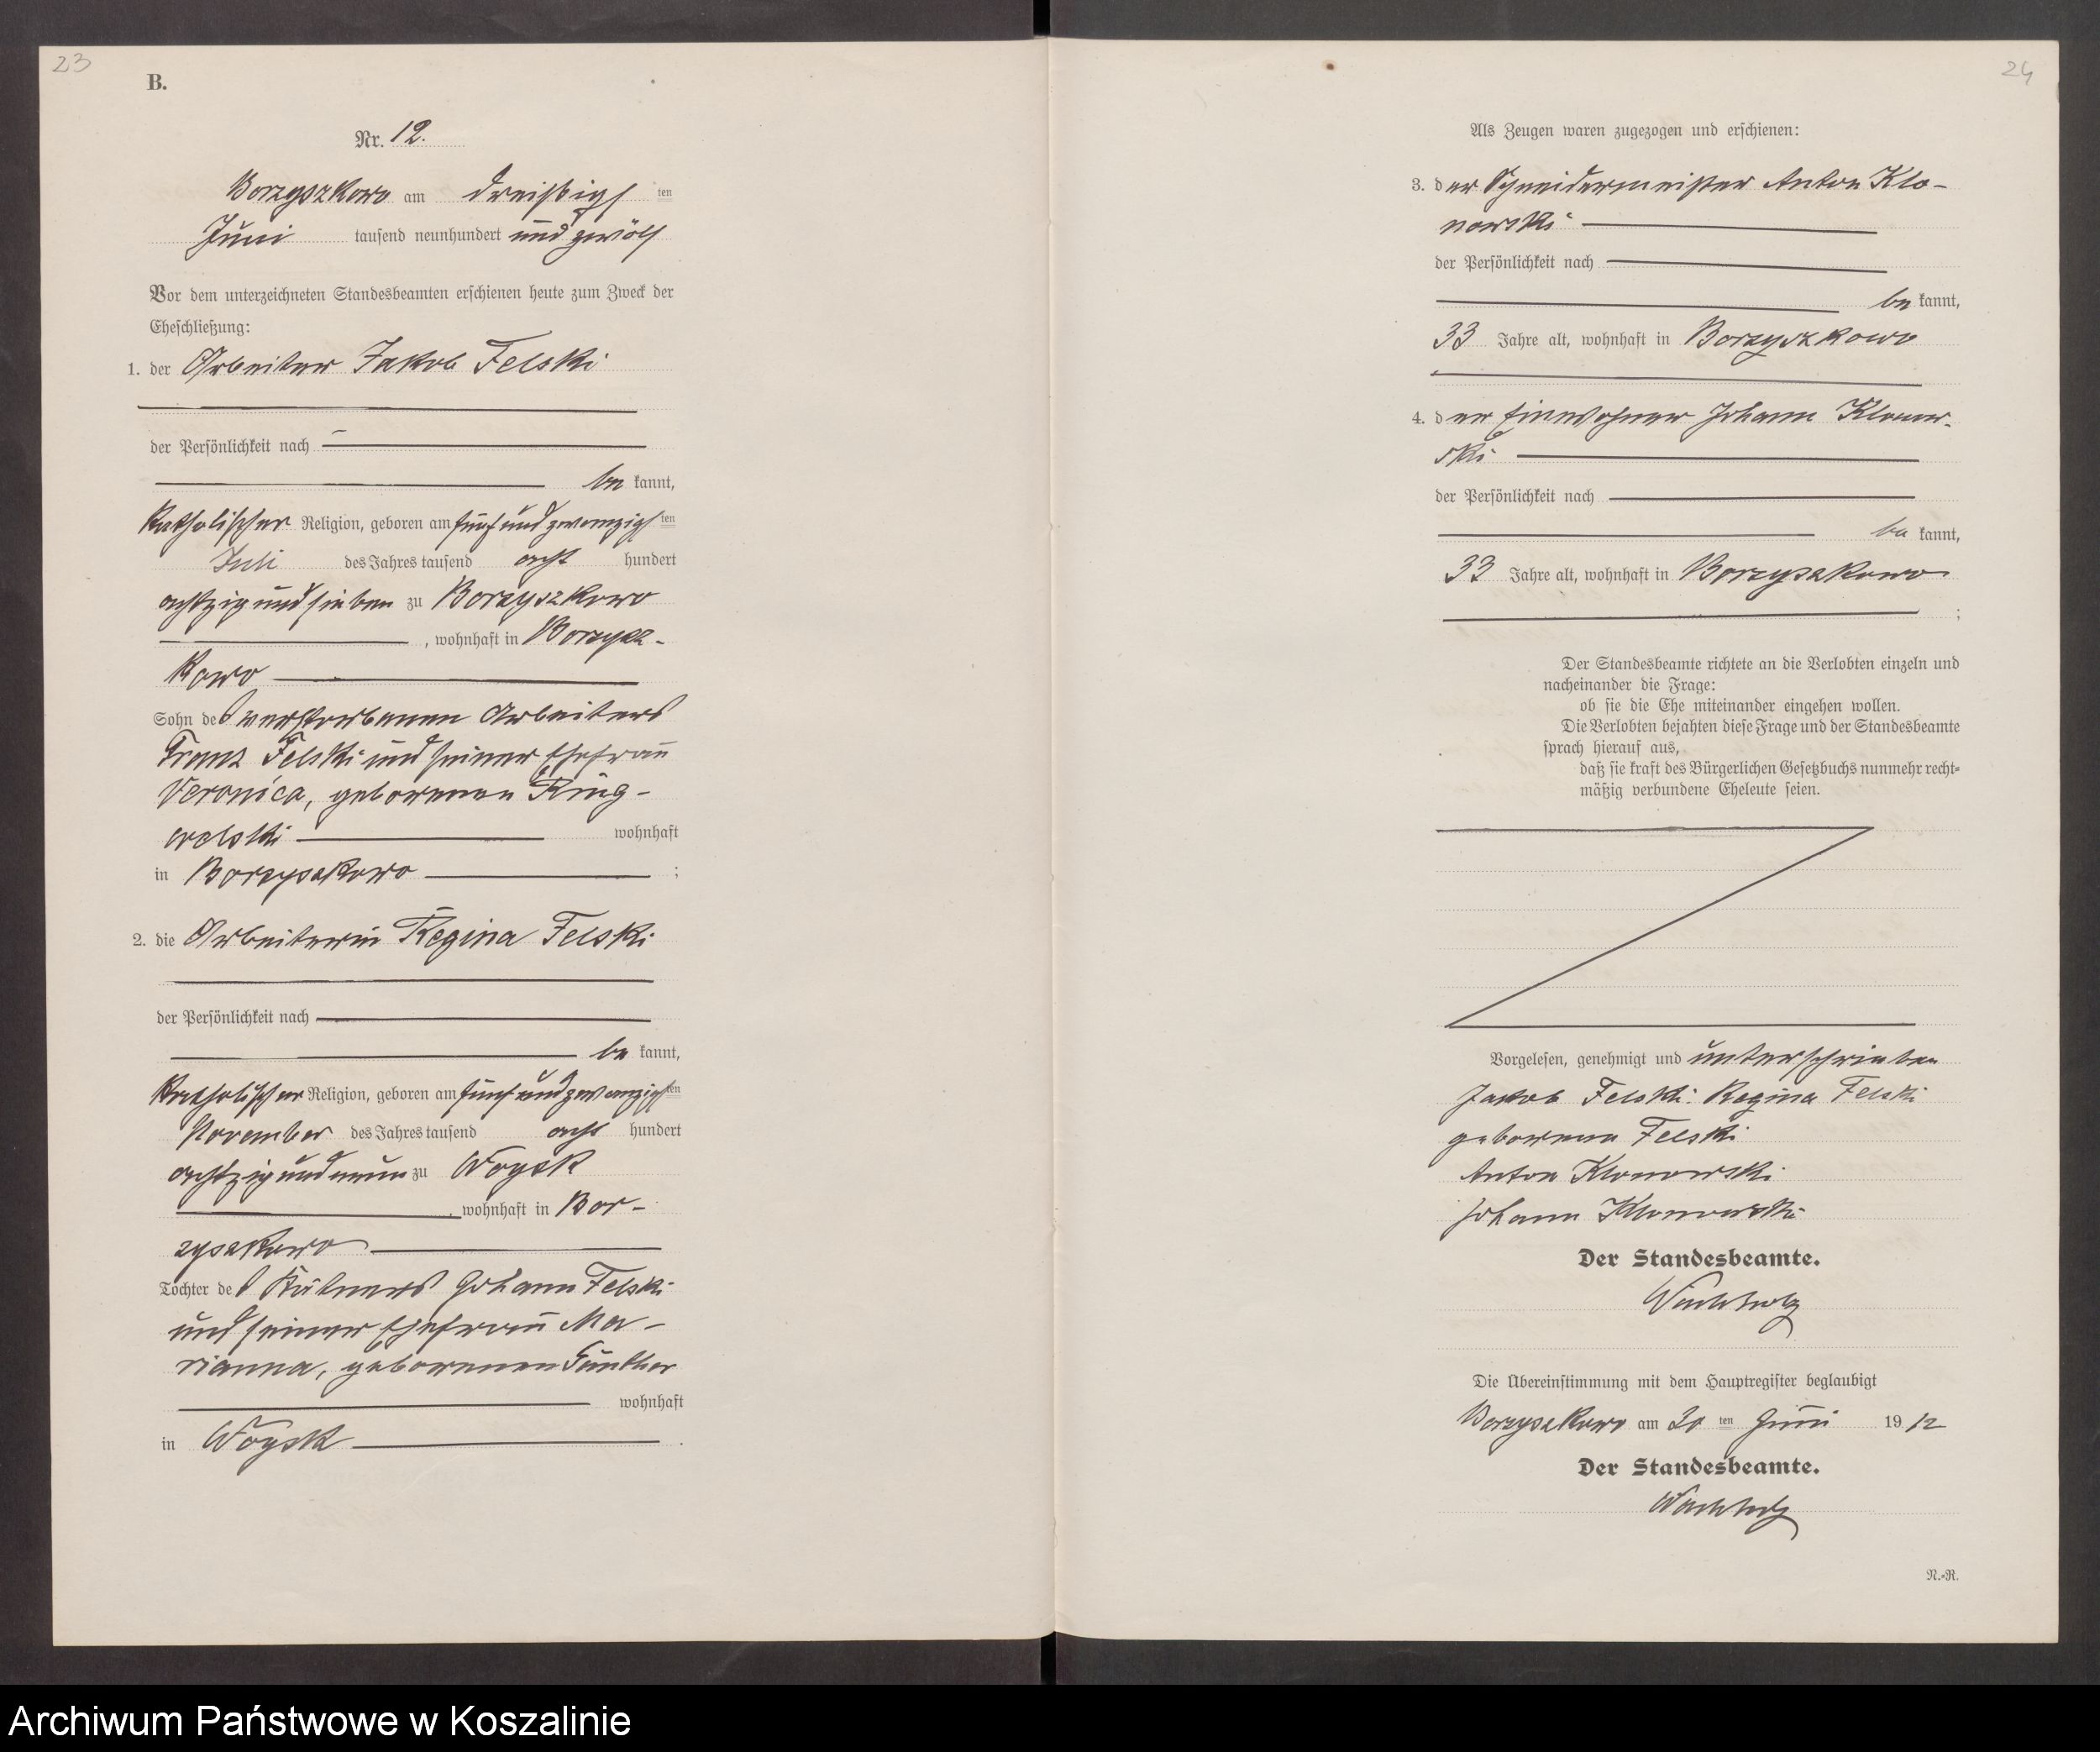 23
B.
Nr. 12.
Borzyszkowo am dreißigsten
Juni tausend neunhundert und zwölf
Vor dem unterzeichneten Standesbeamten erschienen heute zum Zweck der
Eheschließung:
1. der Arbeiter Jakob Felski
der Persönlichkeit nach
be kannt,
katholischer Religion, geboren am fünfundzwanzigsten
Juli des Jahres tausend acht hundert
achtzig und sieben zu Borzyszkowo
, wohnhaft in Borzysz-
kowo
Sohn des verstorbenen Arbeiters
Franz Felski und seiner Ehefrau
Veronica, geborenen
wohnhaft
in Borzyszkowo ;
2. die Arbeiterin Regina Felski
der Persönlichkeit nach
be kannt,
katholischer Religion, geboren am fünfundzwanzigsten
November des Jahres tausend acht hundert
achtzig und neun zu Woysk
, wohnhaft in Bor-
zyszkowo
Tochter des Kätners Johann Felski
und seiner Ehefrau Ma-
rianna, geborenen Günther
wohnhaft
in Woysk .
24
Als Zeugen waren zugezogen und erschienen:
3. der Schneidermeister Anton Klo-
nowski
der Persönlichkeit nach
be kannt,
33 Jahre alt, wohnhaft in Borzyszkowo
4. der Einwohner Johann Klonow-
ski
der Persönlichkeit nach
be kannt,
33 Jahre alt, wohnhaft in Borzyszkowo
;
Der Standesbeamte richtete an die Verlobten einzeln und
nacheinander die Frage:
ob sie die Ehe miteinander eingehen wollen.
Die Verlobten bejahten diese Frage und der Standesbeamte
sprach hierauf aus,
daß sie kraft des Bürgerlichen Gesetzbuchs nunmehr recht-
mäßig verbundene Eheleute seien.
Vorgelesen, genehmigt und unterschrieben
Jakob Felski. Regina Felski
geborene Felski
Anton Klonowski
Johann Klonowski
Der Standesbeamte.
Wachholz
Die Übereinstimmung mit dem Hauptregister beglaubigt
Borzyszkowo am 30 ten Juni 19 12
Der Standesbeamte.
Wachholz
N.-R.
Archiwum Państwowe w Koszalinie